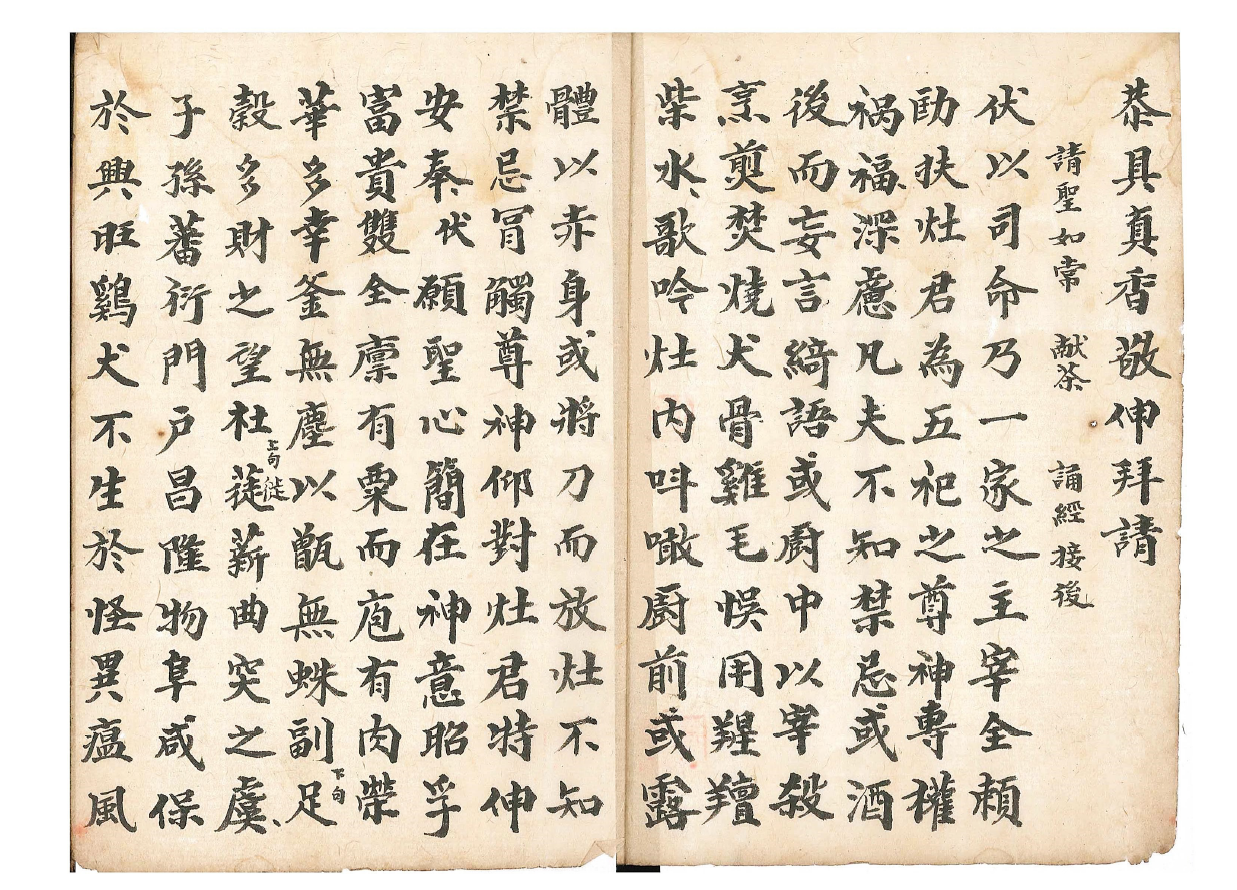 恭具真香敬伸拜請
請聖如常 献茶 誦經接後
伏以司命乃一家之主宰全頼
助扶灶君為五祀之尊神專權
祸福深慮凡夫不知禁忌或酒
後而妄言綺語或厨中以宰殺
烹煎焚燒犬骨雞毛悞用羥羶
柴水歌吟灶内呌噉厨前或露
體以赤身或將刀而放灶不知
禁忌冒觸尊神仰對灶君特伸
安奉伏願聖心簡在神意昭孚
富貴雙全廪有粟而庖有肉榮
華多幸釜無塵以甑無蛛副足下句
穀多財之望杜上句蓰徙薪曲突之虞
子孫蕃衍門戶昌隆物阜咸保
於興旺鷄犬不生於怪異瘟風